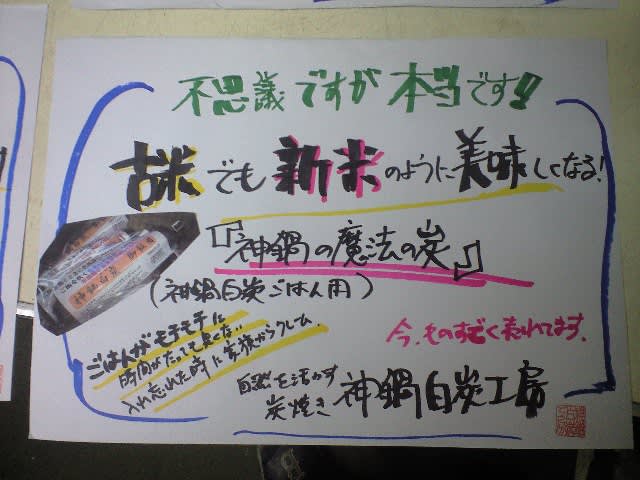 不思議ですが本当です!!
古米でも新米のように美味しくなる!
『神鍋の魔法の炭』
(神鍋白炭ごはん用)
ごはんがモチモチに
時間がたっても臭くない
入れ忘れた時に家族からクレーム。
今、ものすごく売れてます。
自然を活かす
炭焼き 神鍋白炭工房